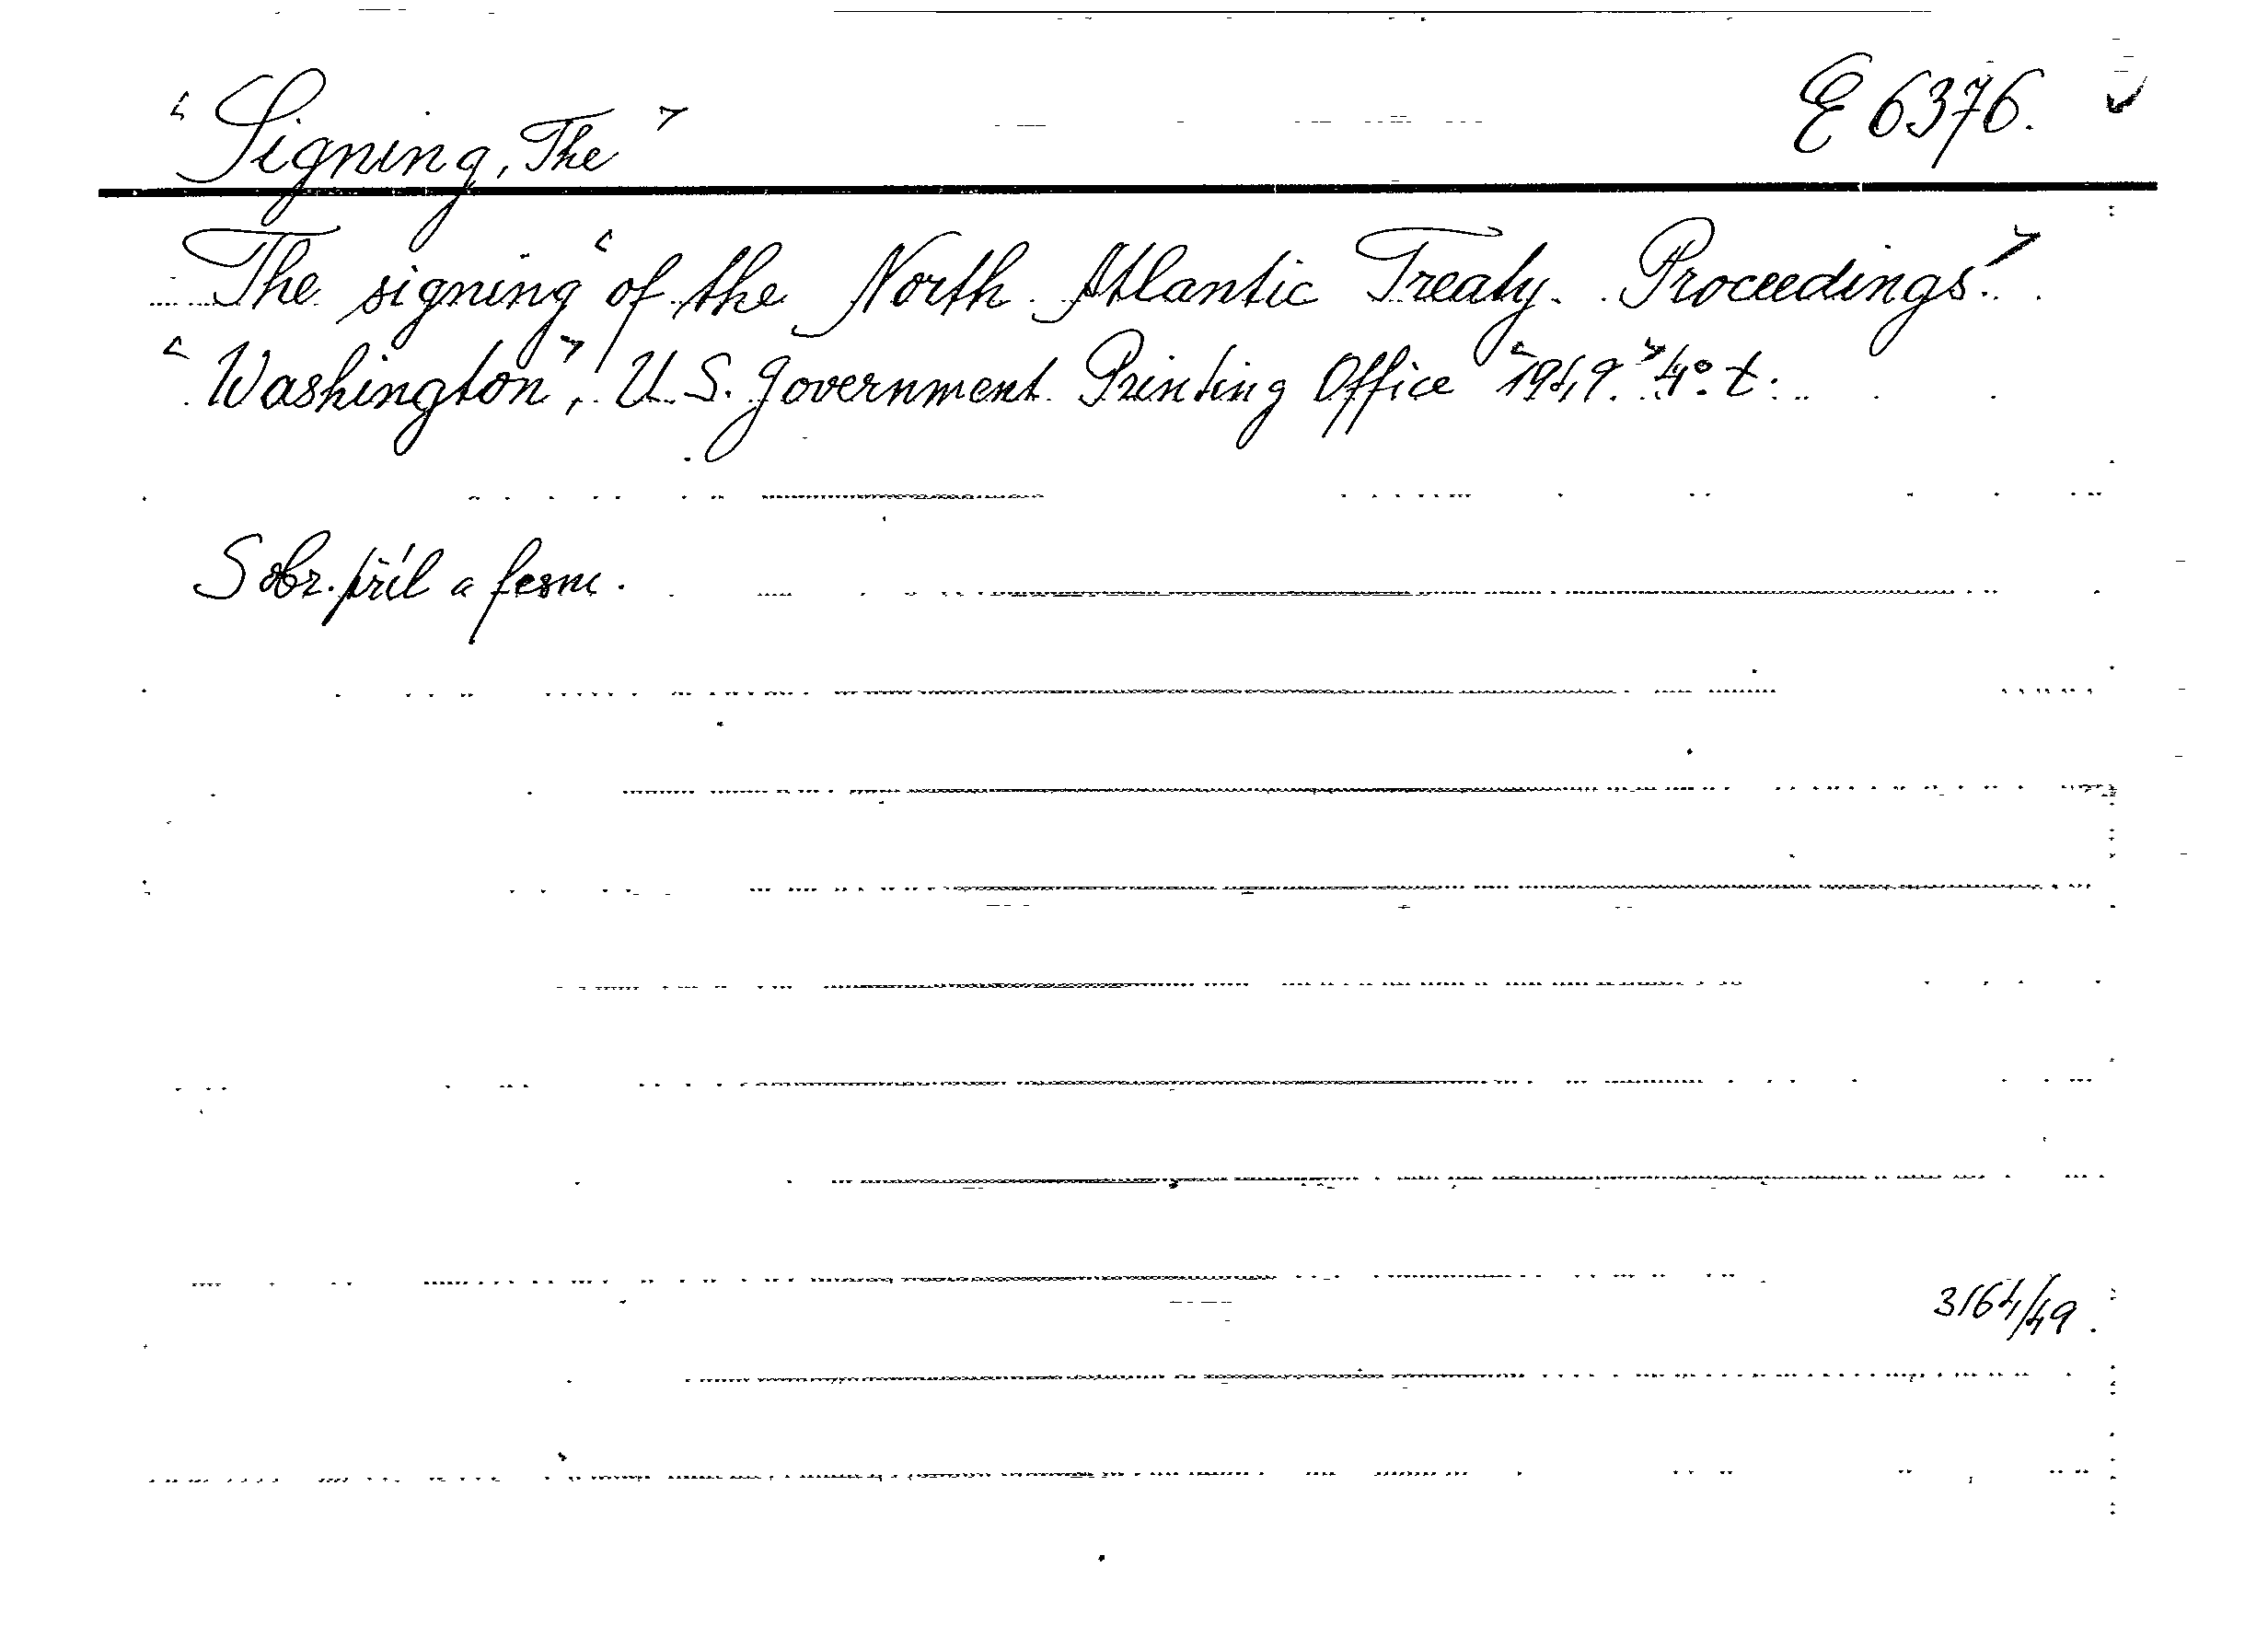 "Signing, The" E 6376.
The signing "of the North Atlantic Treaty. Proceedings."
"Washington", U. S. Government Printing Office "1949." 4°. t.
S obr. příl a fesm.
3164/49.